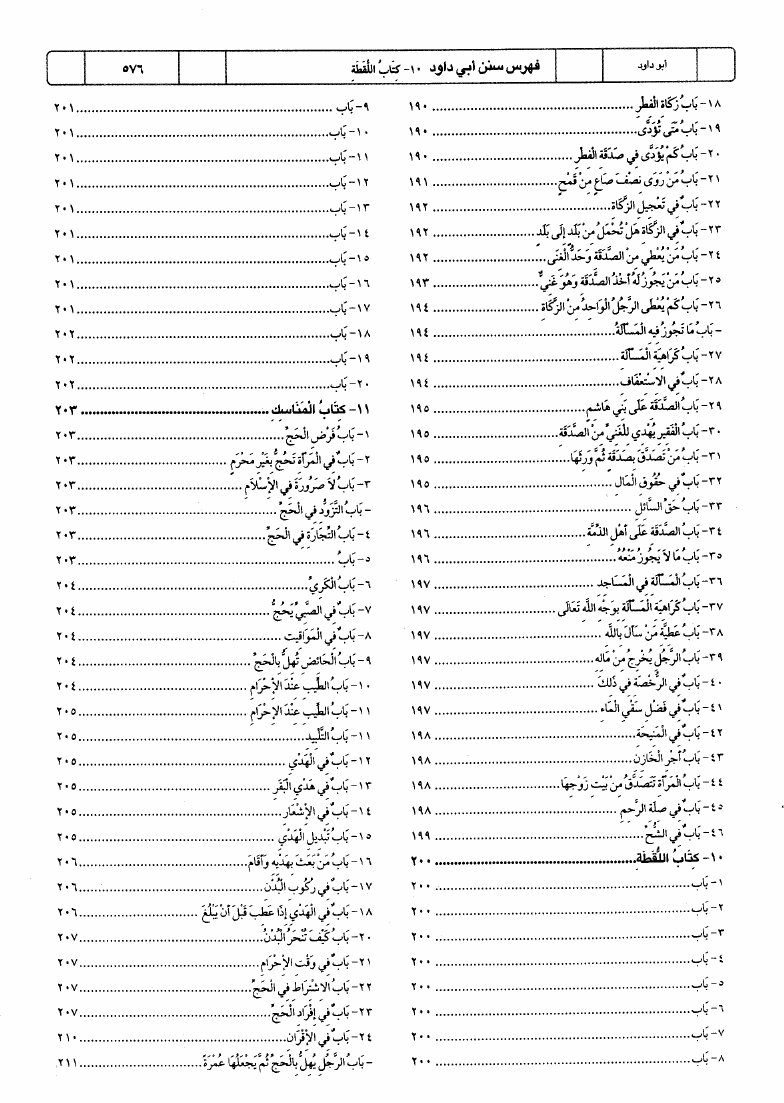 أبو داود فهرس سنن أبي داود ١٠- كِتَابُ اللُّقَطَةِ ٥٧٦
١٨- بَابُ زَكَاةِ الْفِطْرِ ........ ١٩٠
١٩- بَابُ مَتَى تُؤَدَّى ........ ١٩٠
٢٠- بَابُ كَمْ يُؤَدَّى فِي صَدَقَةِ الْفِطْرِ ........ ١٩٠
٢١- بَابُ مَنْ رَوَى نِصْفَ صَاعٍ مِنْ قَمْحٍ ........ ١٩١
٢٢- بَابٌ فِي تَعْجِيلِ الزَّكَاةِ ........ ١٩٢
٢٣- بَابٌ فِي الزَّكَاةِ هَلْ تُحْمَلُ مِنْ بَلَدٍ إِلَى بَلَدٍ ........ ١٩٢
٢٤- بَابُ مَنْ يُعْطِي مِنَ الصَّدَقَةِ وَحَدُّ الْغِنَى ........ ١٩٢
٢٥- بَابُ مَنْ يَجُوزُ لَهُ أَخْذُ الصَّدَقَةِ وَهُوَ غَنِيٌّ ........ ١٩٣
٢٦- بَابُ كَمْ يُعْطَى الرَّجُلُ الْوَاحِدُ مِنَ الزَّكَاةِ ........ ١٩٤
- بَابُ مَا تَجُوزُ فِيهِ الْمَسْأَلَةُ ........ ١٩٤
٢٧- بَابُ كَرَاهِيَةِ الْمَسْأَلَةِ ........ ١٩٤
٢٨- بَابٌ فِي الِاسْتِعْفَافِ ........ ١٩٤
٢٩- بَابُ الصَّدَقَةِ عَلَى بَنِي هَاشِمٍ ........ ١٩٥
٣٠- بَابُ الْفَقِيرِ يُهْدِي لِلْغَنِيِّ مِنَ الصَّدَقَةِ ........ ١٩٥
٣١- بَابُ مَنْ تَصَدَّقَ بِصَدَقَةٍ ثُمَّ وَرِثَهَا ........ ١٩٥
٣٢- بَابٌ فِي حُقُوقِ الْمَالِ ........ ١٩٥
٣٣- بَابُ حَقِّ السَّائِلِ ........ ١٩٦
٣٤- بَابُ الصَّدَقَةِ عَلَى أَهْلِ الذِّمَّةِ ........ ١٩٦
٣٥- بَابُ مَا لَا يَجُوزُ مَنْعُهُ ........ ١٩٦
٣٦- بَابُ الْمَسْأَلَةِ فِي الْمَسَاجِدِ ........ ١٩٧
٣٧- بَابُ كَرَاهِيَةِ الْمَسْأَلَةِ بِوَجْهِ اللَّهِ تَعَالَى ........ ١٩٧
٣٨- بَابُ عَطِيَّةِ مَنْ سَأَلَ بِاللَّهِ ........ ١٩٧
٣٩- بَابُ الرَّجُلِ يُخْرِجُ مِنْ مَالِهِ ........ ١٩٧
٤٠- بَابٌ فِي الرُّخْصَةِ فِي ذَلِكَ ........ ١٩٧
٤١- بَابٌ فِي فَضْلِ سَقْيِ الْمَاءِ ........ ١٩٧
٤٢- بَابٌ فِي الْمَنِيحَةِ ........ ١٩٨
٤٣- بَابُ أَجْرِ الْخَازِنِ ........ ١٩٨
٤٤- بَابُ الْمَرْأَةِ تَتَصَدَّقُ مِنْ بَيْتِ زَوْجِهَا ........ ١٩٨
٤٥- بَابٌ فِي صِلَةِ الرَّحِمِ ........ ١٩٨
٤٦- بَابٌ فِي الشُّحِّ ........ ١٩٩
١٠- كِتَابُ اللُّقَطَةِ ........ ٢٠٠
١- بَاب ........ ٢٠٠
٢- بَاب ........ ٢٠٠
٣- بَاب ........ ٢٠٠
٤- بَاب ........ ٢٠٠
٥- بَاب ........ ٢٠٠
٦- بَاب ........ ٢٠٠
٧- بَاب ........ ٢٠٠
٨- بَاب ........ ٢٠٠
٩- بَاب ........ ٢٠١
١٠- بَاب ........ ٢٠١
١١- بَاب ........ ٢٠١
١٢- بَاب ........ ٢٠١
١٣- بَاب ........ ٢٠١
١٤- بَاب ........ ٢٠١
١٥- بَاب ........ ٢٠١
١٦- بَاب ........ ٢٠١
١٧- بَاب ........ ٢٠١
١٨- بَاب ........ ٢٠٢
١٩- بَاب ........ ٢٠٢
٢٠- بَاب ........ ٢٠٢
١١- كِتَابُ الْمَنَاسِكِ ........ ٢٠٣
١- بَابُ فَرْضِ الْحَجِّ ........ ٢٠٣
٢- بَابٌ فِي الْمَرْأَةِ تَحُجُّ بِغَيْرِ مَحْرَمٍ ........ ٢٠٣
٣- بَابُ لَا صَرُورَةَ فِي الْإِسْلَامِ ........ ٢٠٣
- بَابُ التَّزَوُّدِ فِي الْحَجِّ ........ ٢٠٣
٤- بَابُ التِّجَارَةِ فِي الْحَجِّ ........ ٢٠٣
٥- بَابُ ........ ٢٠٣
٦- بَابُ الْكَرِيِّ ........ ٢٠٤
٧- بَابٌ فِي الصَّبِيِّ يَحُجُّ ........ ٢٠٤
٨- بَابٌ فِي الْمَوَاقِيتِ ........ ٢٠٤
٩- بَابُ الْحَائِضِ تُهِلُّ بِالْحَجِّ ........ ٢٠٤
١٠- بَابُ الطِّيبِ عِنْدَ الْإِحْرَامِ ........ ٢٠٤
١١- بَابُ الطِّيبِ عِنْدَ الْإِحْرَامِ ........ ٢٠٥
١١- بَابُ التَّلْبِيدِ ........ ٢٠٥
١٢- بَابٌ فِي الْهَدْيِ ........ ٢٠٥
١٣- بَابٌ فِي هَدْيِ الْبَقَرِ ........ ٢٠٥
١٤- بَابٌ فِي الْإِشْعَارِ ........ ٢٠٥
١٥- بَابُ تَبْدِيلِ الْهَدْيِ ........ ٢٠٥
١٦- بَابُ مَنْ بَعَثَ بِهَدْيِهِ وَأَقَامَ ........ ٢٠٦
١٧- بَابٌ فِي رُكُوبِ الْبُدْنِ ........ ٢٠٦
١٨- بَابٌ فِي الْهَدْيِ إِذَا عَطِبَ قَبْلَ أَنْ يَبْلُغَ ........ ٢٠٦
٢٠- بَابُ كَيْفَ تُنْحَرُ الْبُدْنُ ........ ٢٠٧
٢١- بَابٌ فِي وَقْتِ الْإِحْرَامِ ........ ٢٠٧
٢٢- بَابُ الِاشْتِرَاطِ فِي الْحَجِّ ........ ٢٠٧
٢٣- بَابٌ فِي إِفْرَادِ الْحَجِّ ........ ٢٠٧
٢٤- بَابٌ فِي الْإِقْرَانِ ........ ٢١٠
- بَابُ الرَّجُلِ يُهِلُّ بِالْحَجِّ ثُمَّ يَجْعَلُهَا عُمْرَةً ........ ٢١١